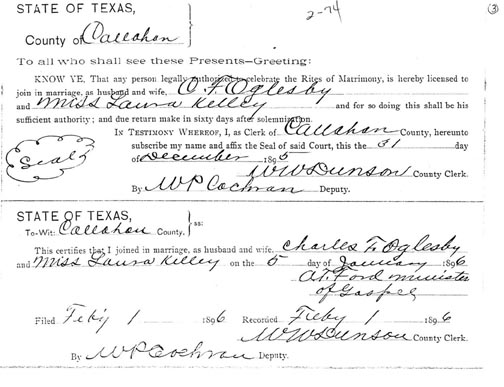 2-74
(3)
STATE OF TEXAS,
County of Callahan
To all who shall see these Presents—Greeting:
KNOW YE, That any person legally authorized to celebrate the Rites of Matrimony, is hereby licensed to
join in marriage, as husband and wife, C. F. Oglesby
and Miss Laura Kelley and for so doing this shall be his
sufficient authority; and due return make in sixty days after solemnization.
IN TESTIMONY WHEREOF, I, as Clerk of Callahan County, hereunto
subscribe my name and affix the Seal of said Court, this the 31 day
of December 1895
Seal
W W Dunson County Clerk.
By W P Cochran Deputy.
STATE OF TEXAS,
To-Wit: Callahan County. ss:
This certifies that I joined in marriage, as husband and wife, Charles F. Oglesby
and Miss Laura Kelley on the 5 day of January 1896
A. T. Ford minister
of Gospel
Filed Feb'y 1 1896 Recorded Feb'y 1 1896
W W Dunson County Clerk.
By W P Cochran Deputy.